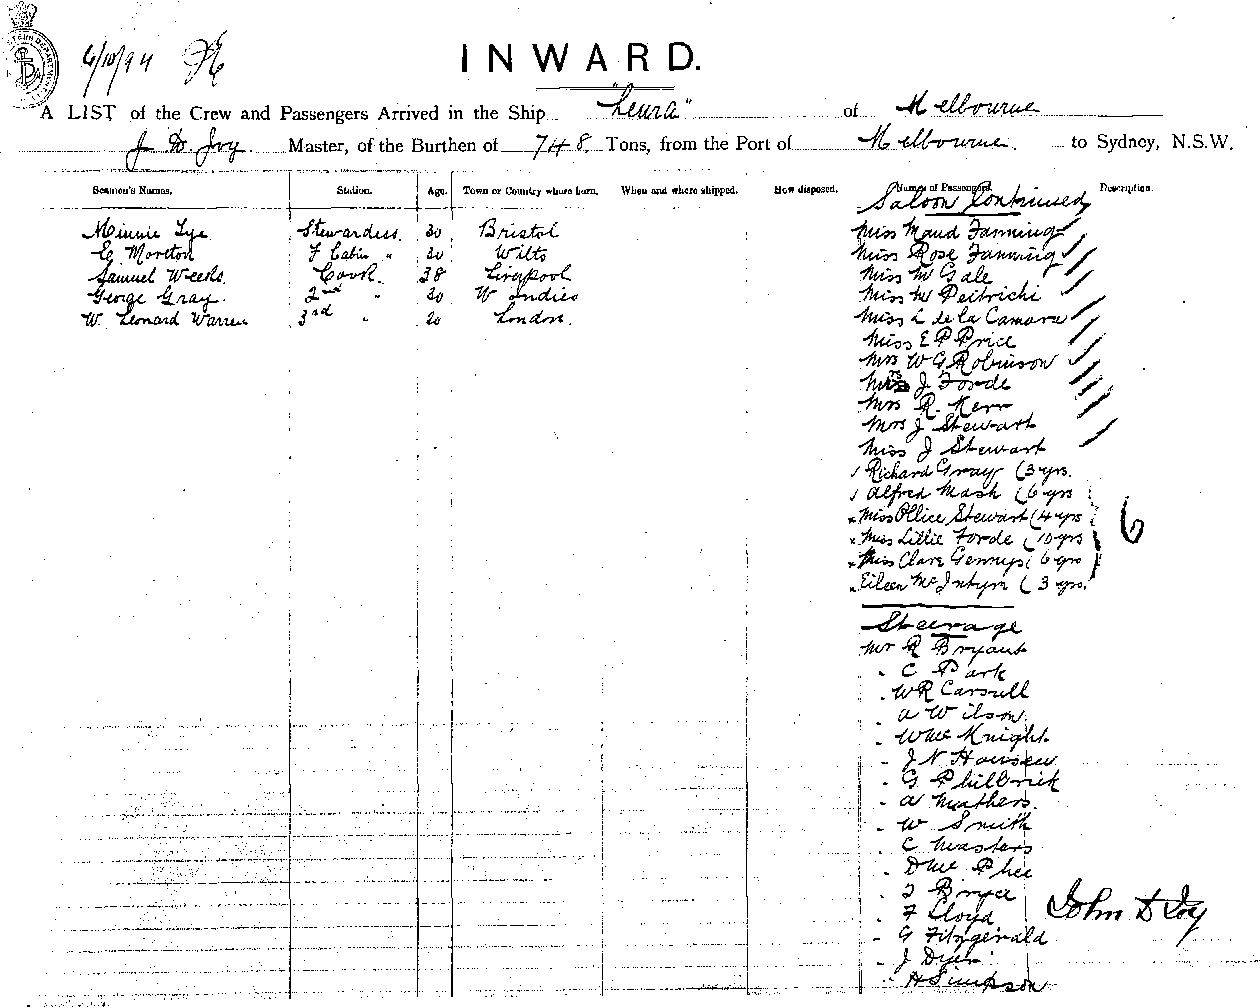 6/10/94
INWARD.
A LIST of the Crew and Passengers Arrived in the Ship "Leura" of Melbourne
J D Joy Master, of the Burthen of 748 Tons, from the Port of Melbourne. to Sydney, N.S.W.
Seamen's Names. Station. Age. Town or Country where born. When and where shipped. How disposed. Names of Passengers. Description.
Saloon Continued
Minnie Lye Stewardess. 30 Bristol
E Moreton F Cabin " 20 Wilts
Samuel Weeks. Cook. 38 Liverpool
George Gray. 2nd " 20 W Indies
W. Leonard Warren 3rd " 20 London.
Miss Maud Fanning
Miss Rose Fanning
Miss M Gale
Miss M Peitrichi
Miss L de la Camara
Miss E P Price
Mrs W G Robinson
Mrs J Forde
Mrs R. Kerr
Mrs J Stewart
Miss J Stewart
Richard Gray (3 yrs.
Alfred Mash (6 yrs
Miss Ollice Stewart (4 yrs
Miss Lillie Forde (10 yrs
Miss Clare Gennys (6 yrs
Eileen McIntyre (3 yrs.
6
Steerage
Mr R Bryant
" C Park
" W R Carsull
" A Wilson
" W McKnight
" J N Housen
" G Philbrick
" A Mathers.
" W Smith
" C Masters
" D McPhee
" T Bryce
" F Lloyd
" G Fitzgerald
" J Dyer
" H Simpson
John D Joy